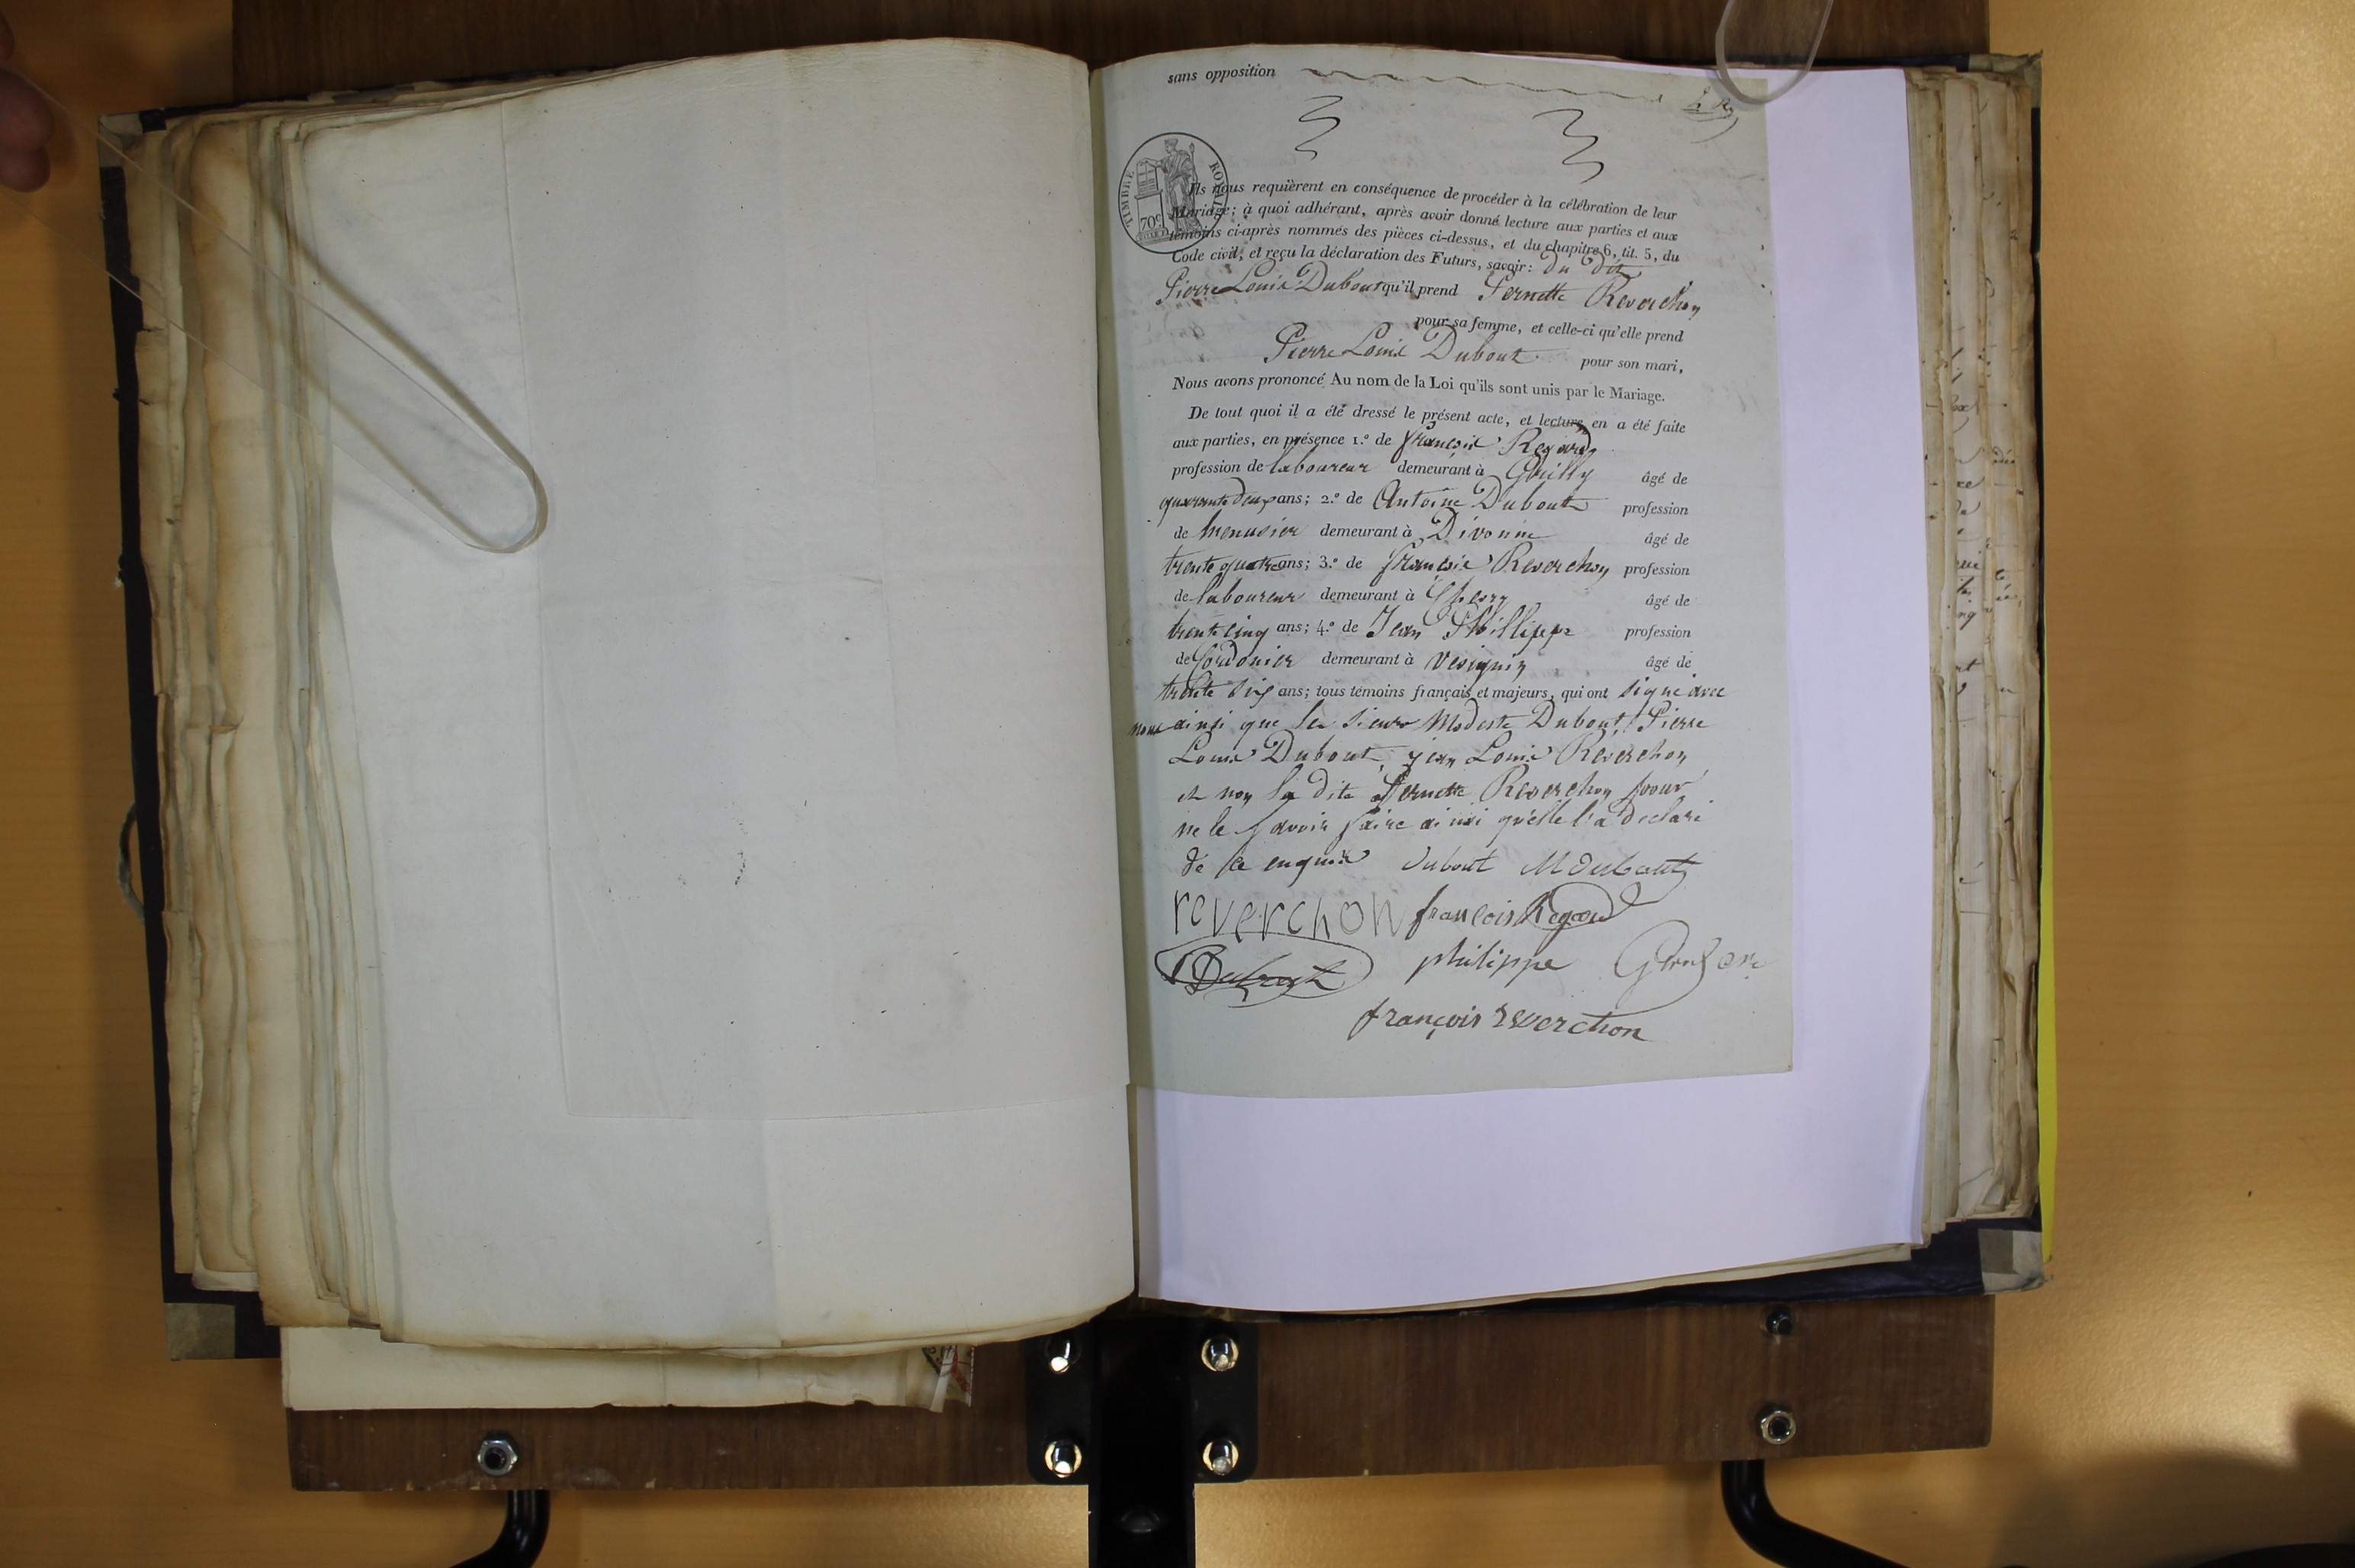 sans opposition
TIMBRE ROYAL
70c
Ils nous requièrent en conséquence de procéder à la célébration de leur
Mariage; à quoi adhérant, après avoir donné lecture aux parties et aux
témoins ci-après nommés des pièces ci-dessus, et du chapitre 6, tit. 5, du
Code civil, et reçu la déclaration des Futurs, savoir: du dit
Pierre Louis Dubout qu'il prend Pernette Reverchon
pour sa femme, et celle-ci qu'elle prend
Pierre Louis Dubout pour son mari,
Nous avons prononcé Au nom de la Loi qu'ils sont unis par le Mariage.
De tout quoi il a été dressé le présent acte, et lecture en a été faite
aux parties, en présence 1.º de François Regard
profession de laboureur demeurant à Grilly âgé de
quarante deux ans; 2.º de Antoine Dubout profession
de menusier demeurant à Divonne âgé de
trente quatre ans; 3.º de François Reverchon profession
de laboureur demeurant à âgé de
trente cinq ans; 4.º de Jean Phillippe profession
de Cordonier demeurant à Vesignin âgé de
trente six ans; tous témoins français et majeurs, qui ont signé avec
nous ainsi que les sieurs Modeste Dubout, Pierre
Louis Dubout, jean Louis Reverchon
et non la dite Pernette Reverchon pour
ne le savoir faire ainsi qu'elle l'a declaré
de ce enquise Dubout M Dubout
reverchon françois Regard
Dubout philippe
françois reverchon